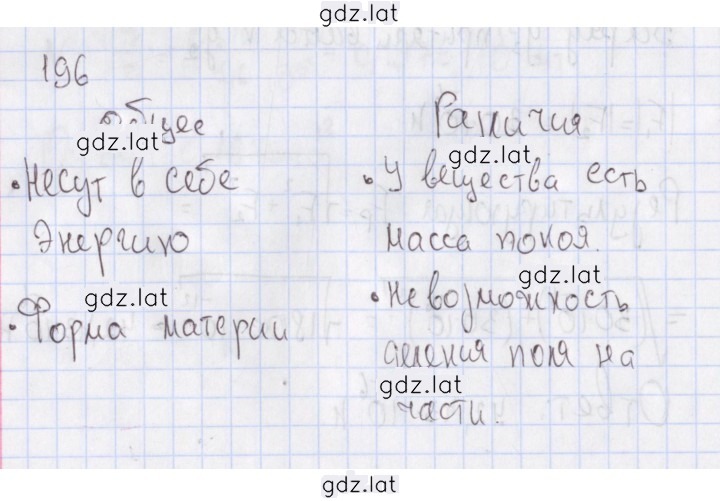 gdz.lat
196
Общее
gdz.lat
• Несут в себе
Энергию
gdz.lat
• Форма материи
Различия
gdz.lat
• У вещества есть
масса покоя.
gdz.lat
• Невозможность
деления поля на
gdz.lat
части.
gdz.lat